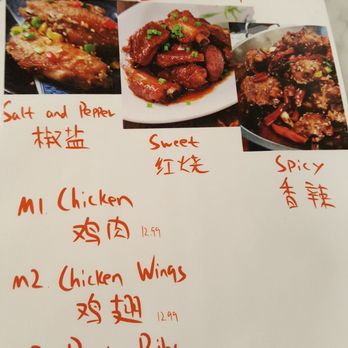 Salt and Pepper
椒盐
Sweet
红烧
Spicy
香辣
M1. Chicken
鸡肉 12.99
M2. Chicken Wings
鸡翅 12.99